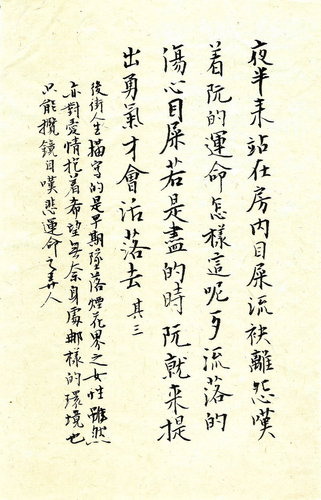 夜半來站在房內目屎流袂離怨嘆
着阮的運命怎樣這呢歹流落的
傷心目屎若是盡的時阮就來提
出勇氣才會活落去 其三
後街人生描寫的是早期墜落煙花界之女性雖然
亦對愛情抱着希望無奈身處那樣的環境也
只能攬鏡自嘆悲運命之弄人